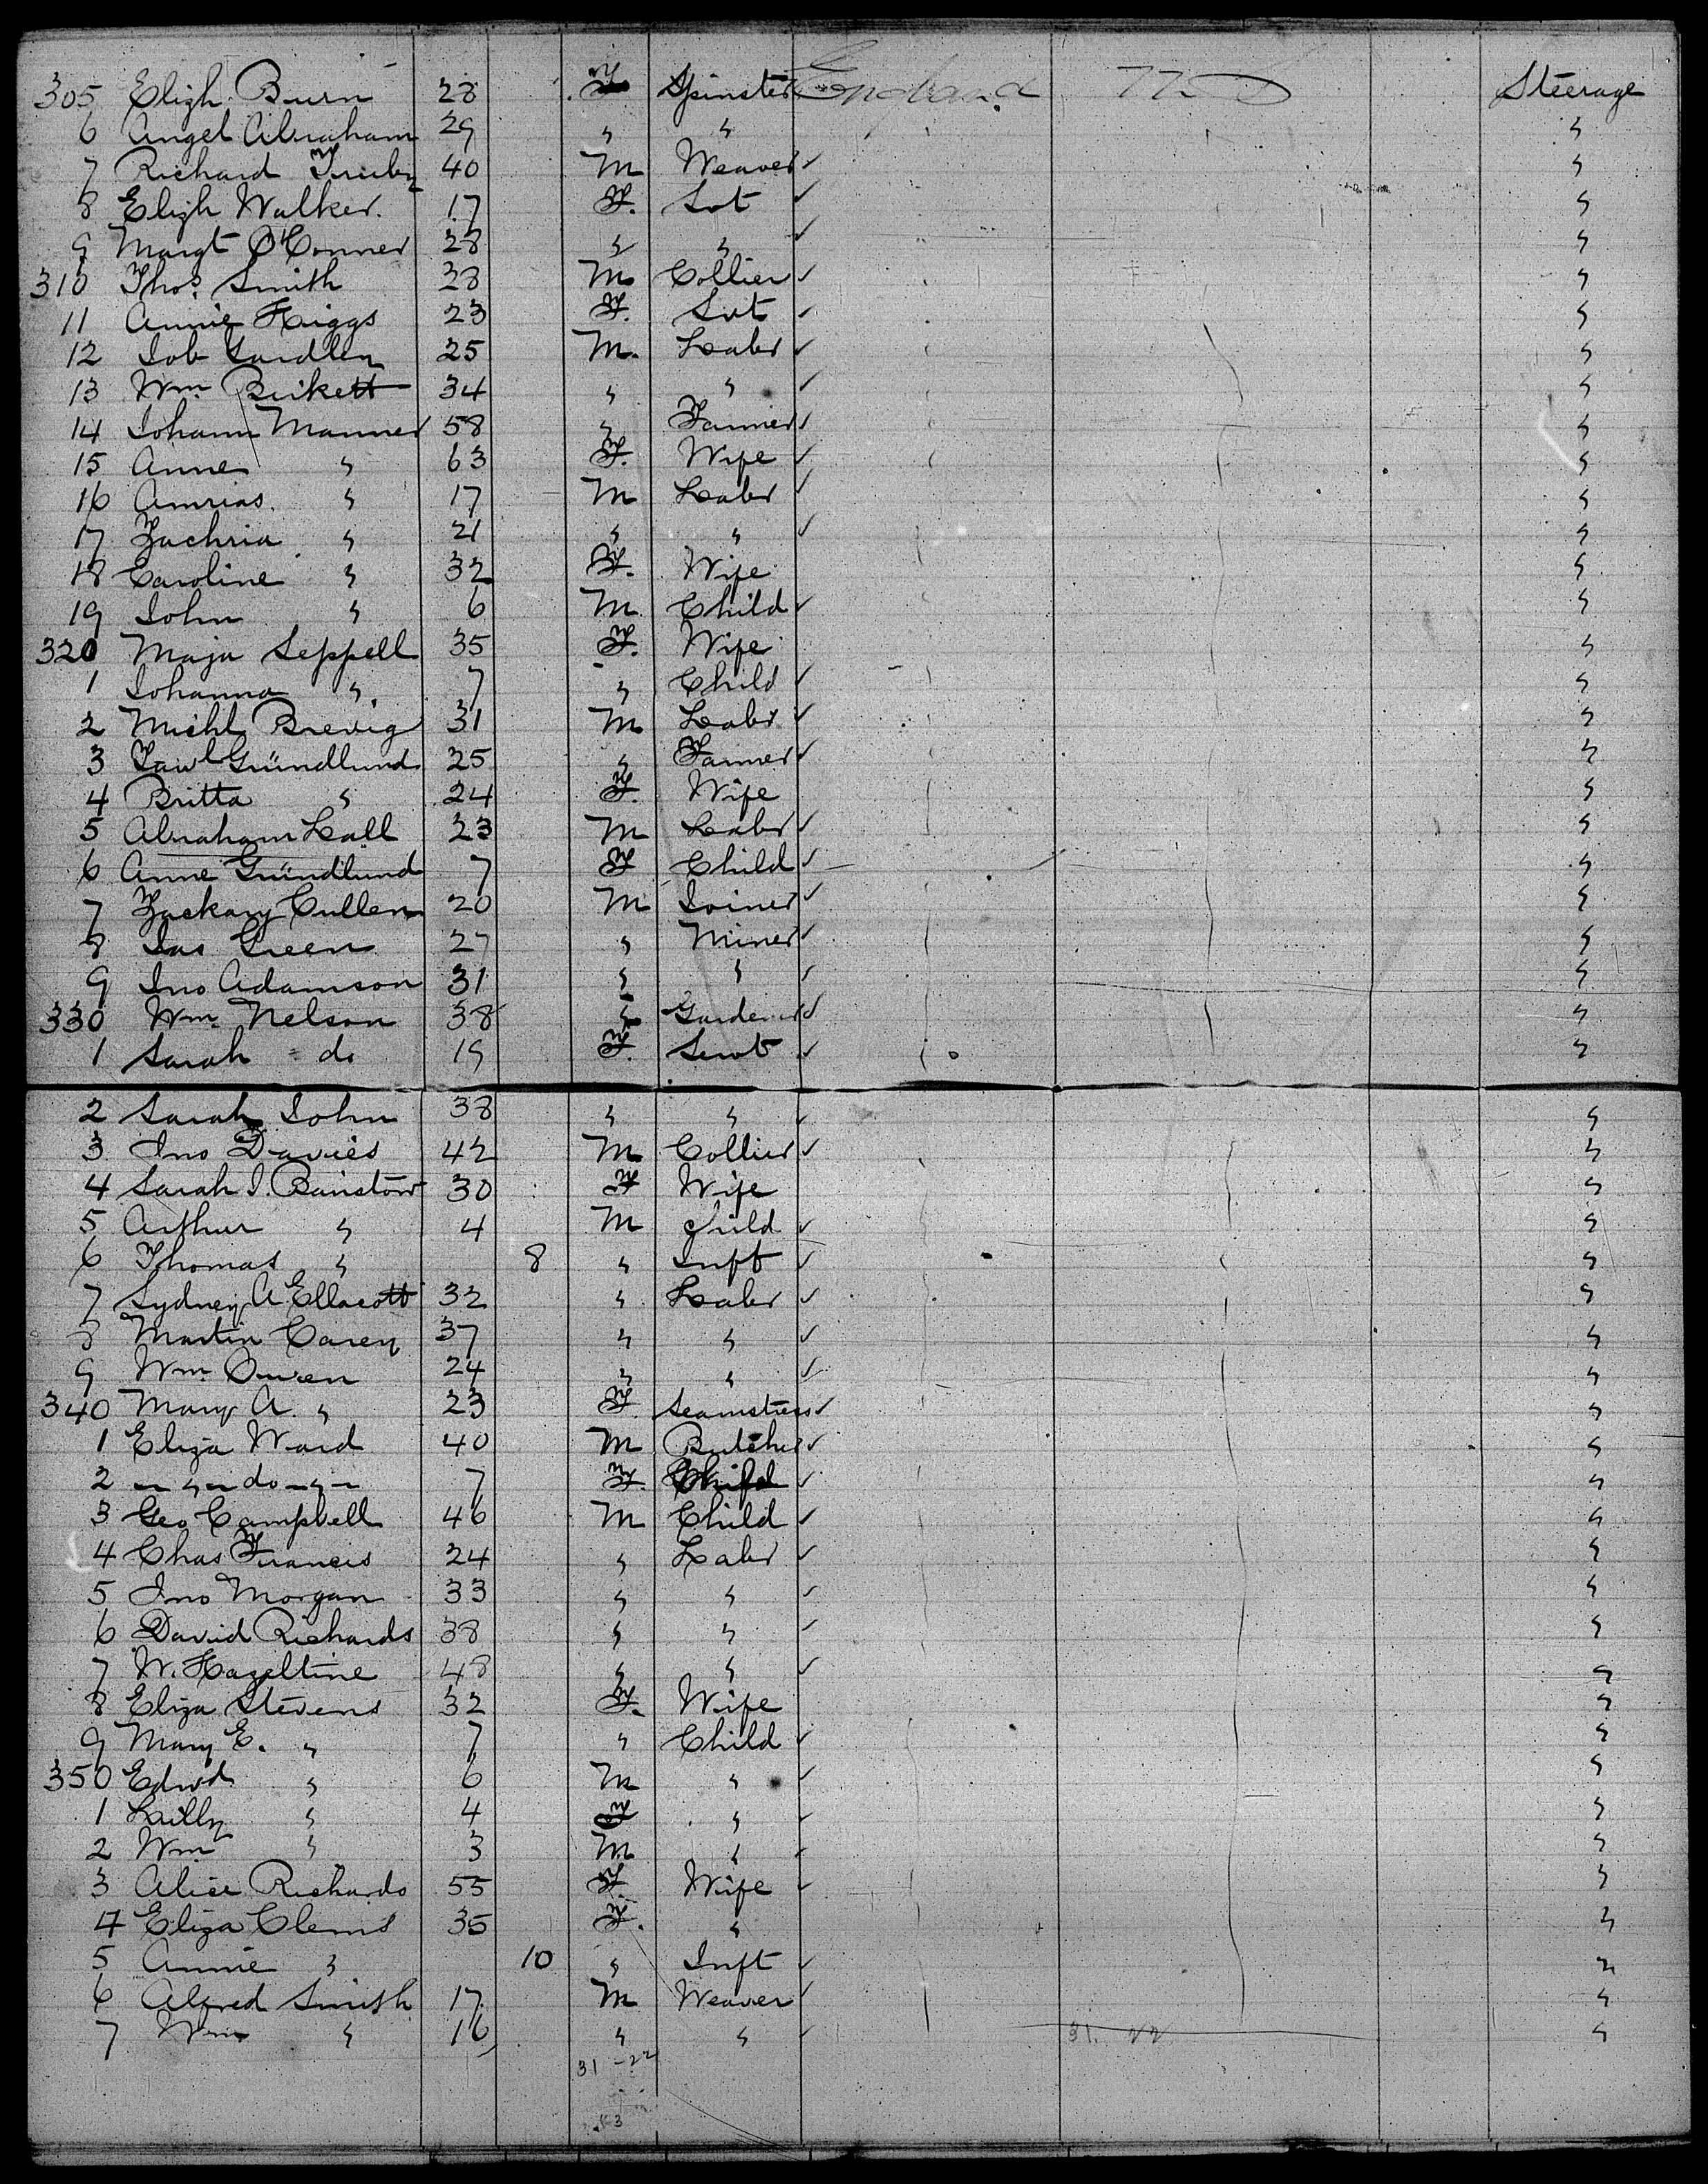 305 Elizh. Burn 28 F Spinster England U S Steerage
6 Angel Abraham 29 " " "
7 Richard 40 M Weaver "
8 Elizh Walker. 17 F. Svt "
9 Margt O'Conner 28 " " "
310 Thos. Smith 28 M. Collier "
11 Annie Higgs 23 F. Svt "
12 Job Yardley 25 M. Labr "
13 Wm. Birkett 34 " " "
14 Johann Manner 58 " Farmer "
15 Anne " 63 F. Wife "
16 Amrias. " 17 M Labr "
17 Zachria " 21 " " "
18 Caroline " 32 F. Wife "
19 John " 6 M Child "
320 Maja Seppell 35 F. Wife "
1 Johanna " 7 " Child "
2 Michl Brevig 31 M Labr "
3 Gründlund 25 " Farmer "
4 Britta " 24 F. Wife "
5 Abraham Lall 23 M Labr "
6 Anne Gründlund 7 F Child "
7 Zackary Cullen 20 M Joiner "
8 Jas Green 27 " Miner "
9 Jno Adamson 31 " " "
330 Wm. Nelson 38 " Gardener "
1 Sarah do 19 F. Servt "
2 Sarah John 38 " " "
3 Jno Davies 42 M Collier "
4 Sarah J. Bairstow 30 F Wife "
5 Arthur " 4 M Child "
6 Thomas " 8 " Inft "
7 Sydney A Ellacott 32 " Labr "
8 Martin Carey 37 " " "
9 Wm. Owen 24 " " "
340 Mary A. " 23 F. Seamstress "
1 Eliza Ward 40 M Butcher "
2 " do " 7 F. Child "
3 Geo Campbell 46 M Child "
4 Chas Francis 24 " Labr "
5 Jno Morgan 33 " " "
6 David Richards 38 " " "
7 W. Hazeltine 48 " " "
8 Eliza Stevens 32 F. Wife "
9 Mary E. " 7 " Child "
350 Edwd " 6 M " "
1 Lilly " 4 F " "
2 Wm " 3 M " "
3 Alice Richards 55 F. Wife "
4 Eliza Clems 35 F. " "
5 Annie " 10 " Inft "
6 Alfred Smith 17 M Weaver "
7 Wm " 16 " " "
31 22
31 - 22